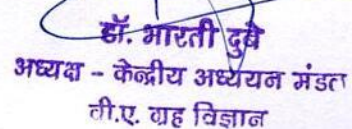 डॉ. भारती दुबे
अध्यक्ष - केन्द्रीय अध्ययन मंडल
वी.ए. गृह विज्ञान